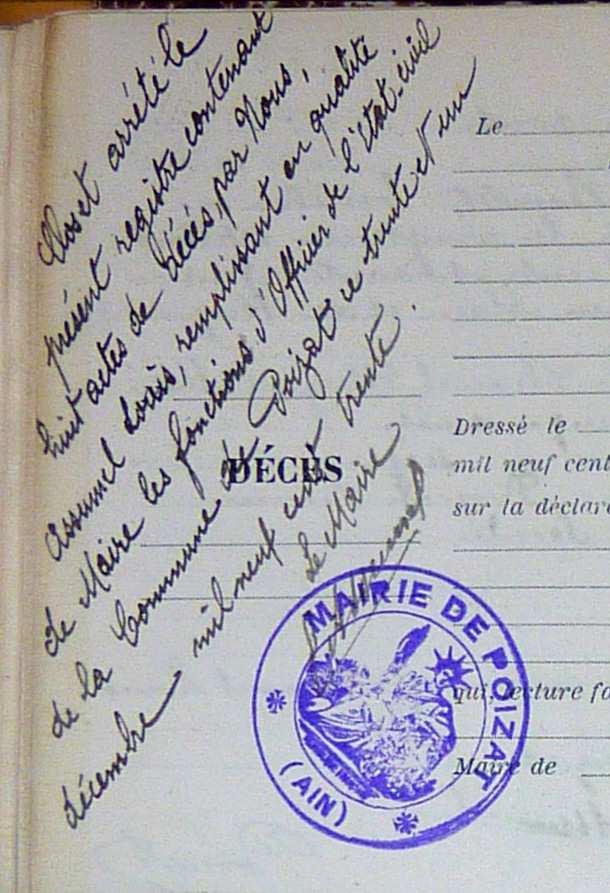 Clos et arrêté le
présent registre contenant
huit actes de décès, par Nous,
Assumel Louis, remplissant en qualité
de Maire les fonctions d'Officier de l'Etat-civil
de la Commune de Poizat ce trente et un
décembre mil neuf cent trente.
Le Maire
Assumel
DÉCÈS
MAIRIE DE POIZAT
(AIN)
Le
Dressé le
mil neuf cent
sur la déclara
qui, lecture fa
Maire de